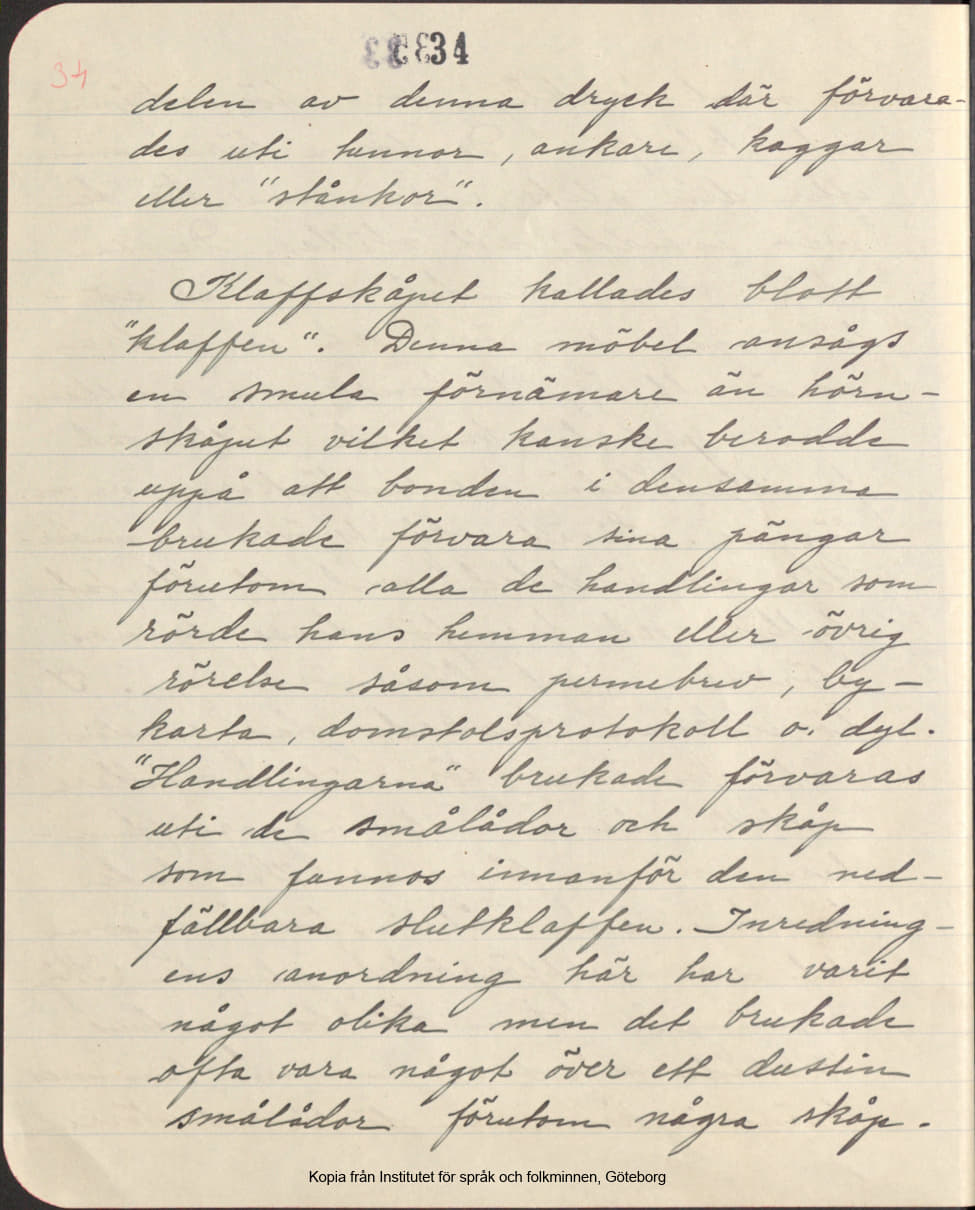 34
3834
delen av denna dryck där förvara-
des uti tunnor, ankare, kaggar
eller "stånkor".
Klaffskåpet kallades blott
"klaffen". Denna möbel ansågs
en smula förnämare än hörn-
skåpet vilket kanske berodde
uppå att bonden i densamma
brukade förvara sina pängar
förutom alla de handlingar som
rörde hans hemman eller övrig
rörelse såsom permebrev, by-
karta, domstolsprotokoll o. dyl.
"Handlingarna" brukade förvaras
uti de smålådor och skåp
som funnos innanför den ned-
fällbara slutklaffen. Inredning-
ens anordning här har varit
något olika men det brukade
ofta vara något över ett dustin
smålådor förutom några skåp.
Kopia från Institutet för språk och folkminnen, Göteborg